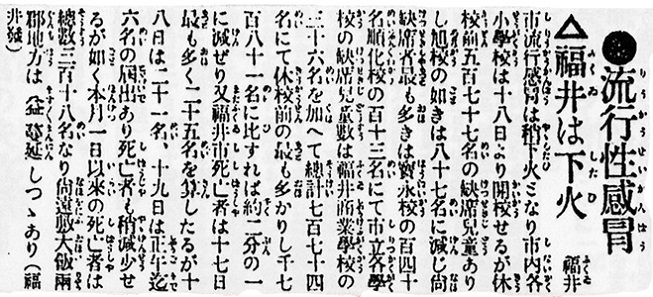 ●流行性感冒
△福井は下火 福井
市流行感冒は稍下火となり市内各
小學校は十八日より開校せるが休
校前五百七十七名の缺席兒童あり
し旭校の如きは八十七名に減じ尚
缺席者最も多きは寳永校の百四十
名順化校の百十三名にて市立各學
校の缺席兒童數は福井商業學校の
三十六名を加へて總計七百七十四
名にて休校前の最も多かりし千七
百八十一名に比すれば約二分の一
に減ぜり又福井市死亡者は十七日
最も多く二十五名を算したるが十
八日は二十一名、十九日は正午迄
六名の屆出あり死亡者も稍減少せ
るが如く本月一日以來の死亡者は
總數三百十八名なり尚遠敷大飯兩
郡地方は益蔓延しつゝあり（福
井發）